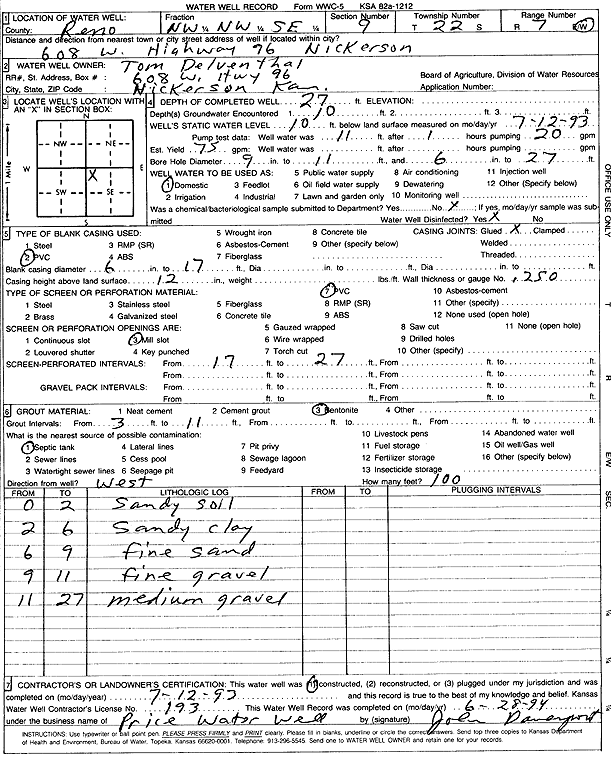 WATER WELL RECORD Form WWC-5 KSA 82a-1212
1 LOCATION OF WATER WELL: Fraction Section Number Township Number Range Number
County: Reno NW ¼ NW ¼ SE ¼ 9 T 22 S R 7 E/W
Distance and direction from nearest town or city street address of well if located within city?
608 W. Highway 96 Nickerson
2 WATER WELL OWNER: Tom Delventhal
RR#, St. Address, Box # : 608 W. Hwy 96 Board of Agriculture, Division of Water Resources
City, State, ZIP Code : Nickerson Kan. Application Number:
3 LOCATE WELL'S LOCATION WITH AN "X" IN SECTION BOX:
N
NW NE
W E
X
SW SE
S
1 Mile
4 DEPTH OF COMPLETED WELL 27 ft. ELEVATION:
Depth(s) Groundwater Encountered 1. 10 ft. 2. ft. 3. ft.
WELL'S STATIC WATER LEVEL 10 ft. below land surface measured on mo/day/yr 7-12-93
Pump test data: Well water was 11 ft. after 1 hours pumping 20 gpm
Est. Yield 75 gpm: Well water was ft. after hours pumping gpm
Bore Hole Diameter 9 in. to 11 ft., and 6 in. to 27 ft.
WELL WATER TO BE USED AS: 5 Public water supply 8 Air conditioning 11 Injection well
1 Domestic 3 Feedlot 6 Oil field water supply 9 Dewatering 12 Other (Specify below)
2 Irrigation 4 Industrial 7 Lawn and garden only 10 Monitoring well
Was a chemical/bacteriological sample submitted to Department? Yes No X ; If yes, mo/day/yr sample was submitted Water Well Disinfected? Yes X No
5 TYPE OF BLANK CASING USED: 5 Wrought iron 8 Concrete tile CASING JOINTS: Glued X Clamped
1 Steel 3 RMP (SR) 6 Asbestos-Cement 9 Other (specify below) Welded
2 PVC 4 ABS 7 Fiberglass Threaded
Blank casing diameter 6 in. to 17 ft., Dia in. to ft., Dia in. to ft.
Casing height above land surface 12 in., weight lbs./ft. Wall thickness or gauge No. .250
TYPE OF SCREEN OR PERFORATION MATERIAL: 7 PVC 10 Asbestos-cement
1 Steel 3 Stainless steel 5 Fiberglass 8 RMP (SR) 11 Other (specify)
2 Brass 4 Galvanized steel 6 Concrete tile 9 ABS 12 None used (open hole)
SCREEN OR PERFORATION OPENINGS ARE: 5 Gauzed wrapped 8 Saw cut 11 None (open hole)
1 Continuous slot 3 Mill slot 6 Wire wrapped 9 Drilled holes
2 Louvered shutter 4 Key punched 7 Torch cut 10 Other (specify)
SCREEN-PERFORATED INTERVALS: From 17 ft. to 27 ft., From ft. to ft.
From ft. to ft., From ft. to ft.
GRAVEL PACK INTERVALS: From ft. to ft., From ft. to ft.
From ft. to ft., From ft. to ft.
6 GROUT MATERIAL: 1 Neat cement 2 Cement grout 3 Bentonite 4 Other
Grout Intervals: From 3 ft. to 11 ft., From ft. to ft., From ft. to ft.
What is the nearest source of possible contamination: 10 Livestock pens 14 Abandoned water well
1 Septic tank 4 Lateral lines 7 Pit privy 11 Fuel storage 15 Oil well/Gas well
2 Sewer lines 5 Cess pool 8 Sewage lagoon 12 Fertilizer storage 16 Other (specify below)
3 Watertight sewer lines 6 Seepage pit 9 Feedyard 13 Insecticide storage
Direction from well? West How many feet? 100
FROM TO LITHOLOGIC LOG FROM TO PLUGGING INTERVALS
0 2 Sandy soil
2 6 Sandy clay
6 9 fine sand
9 11 fine gravel
11 27 medium gravel
7 CONTRACTOR'S OR LANDOWNER'S CERTIFICATION: This water well was (1) constructed, (2) reconstructed, or (3) plugged under my jurisdiction and was
completed on (mo/day/year) 7-12-93 and this record is true to the best of my knowledge and belief. Kansas
Water Well Contractor's License No. 193 This Water Well Record was completed on (mo/day/yr) 6-28-94
under the business name of Price Water Well by (signature) John Davenport
INSTRUCTIONS: Use typewriter or ball point pen. PLEASE PRESS FIRMLY and PRINT clearly. Please fill in blanks, underline or circle the correct answers. Send top three copies to Kansas Department
of Health and Environment, Bureau of Water, Topeka, Kansas 66620-0001. Telephone: 913-296-5545. Send one to WATER WELL OWNER and retain one for your records.
OFFICE USE ONLY
T
R
E/W
SEC.
¼
¼
¼